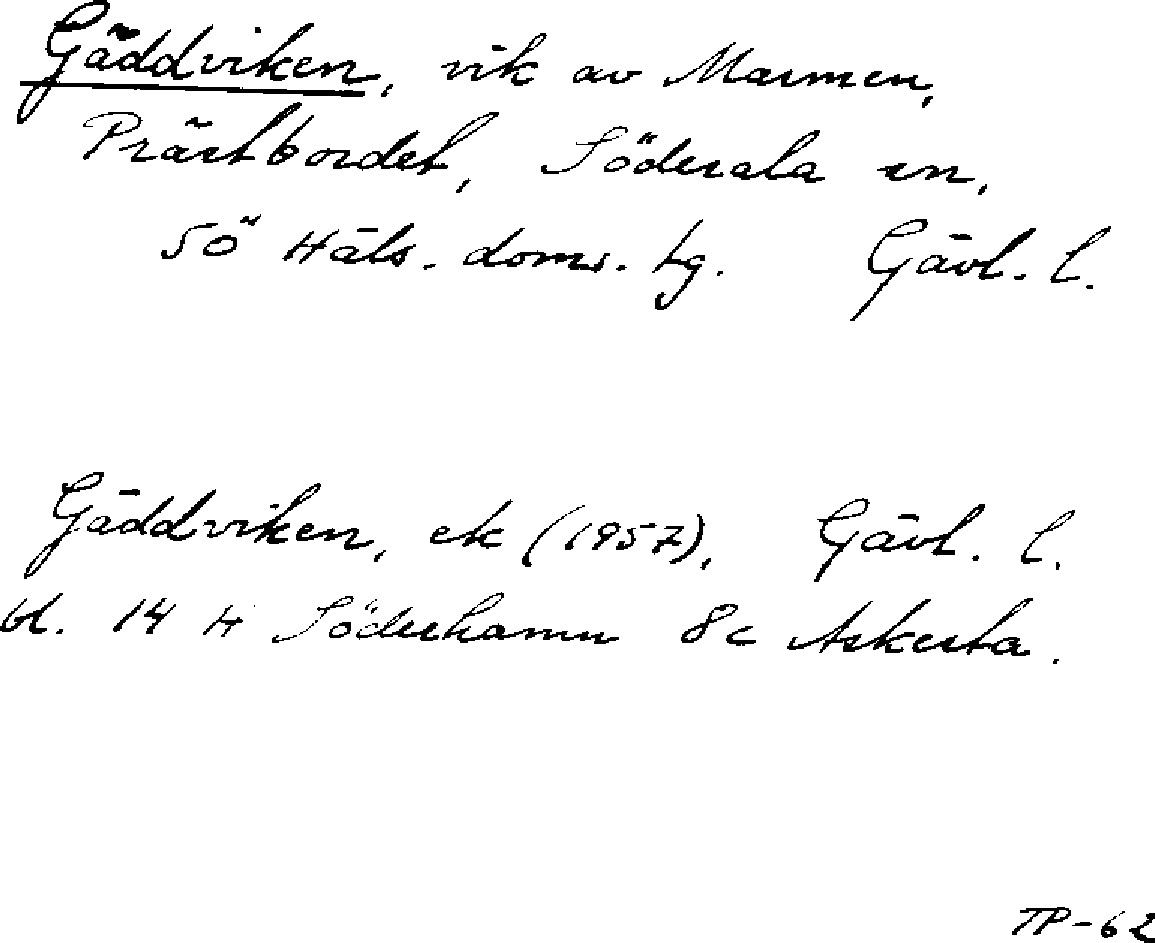 Gäddviken, vik av Marmen,
Prästbordet, Söderala sn,
SÖ Häls. doms. tg. Gävl. l.
Gäddviken, ek (1957), Gävl. l.
bl. 14 H Söderhamn 8c Askesta.
TP-62